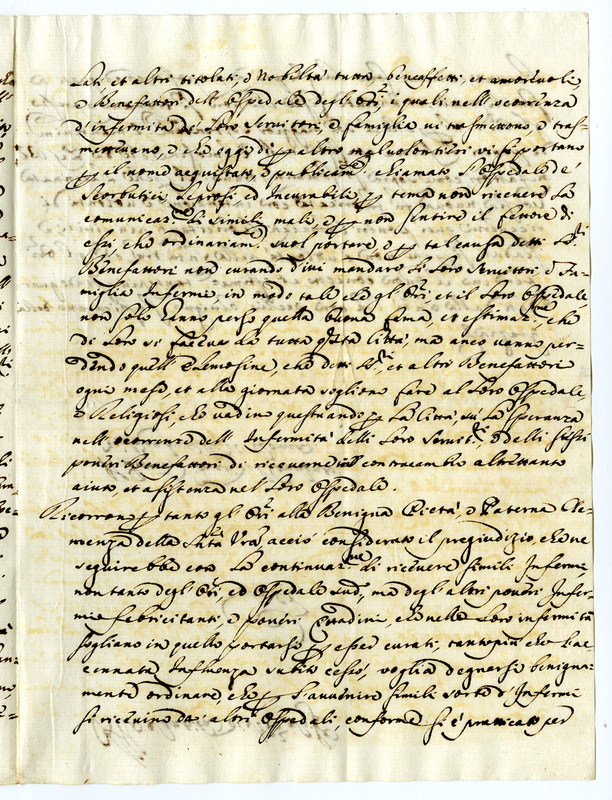 lati, et altri titolati, e Nobiltà tutta beneaffetti, et amorevoli,
e Benefattori dell'Ospedale degl'Or.ri i quali nell'occorrenza
d'infermità de' Loro Servitori, e famiglia vi trasmettono, e tras-
mettevano, e che oggi dì p altro malvolontieri vi si portano
p al nome acquistato, e publicam.te chiamato l'Ospedale de'
Scorbutici, Leprosi, ed Incurabili p tema non ricevere la
comunicaz.ne di simili mali, e p non sentire il fetore di
essi, che ordinariam.te suol portare, e p tal causa detti SS.ri
Benefattori non curando d'ivi mandare li Loro Servitori, e Fa-
miglia Infermi, in modo tale che gl'Or.ri, et il Loro Ospedale
non solo hanno perso quella buona fama, et estimaz.ne, che
di Loro si faceva da tutta q.sta Città, ma anco vanno per-
dendo quell'Elemosine, che detti SS.ri, et altri Benefattori
ogni mese, et alla giornata sogliono fare al Loro Ospedale,
e Religiosi, che vadino questuando p la Città, sù la speranza
nell'occorrenze dell'Infermità delli Loro Servit.ri, e delli stessi
poveri Benefattori di riceverne il contracambio altrettanto
aiuto, et assistenza nel Loro Ospedale.
Ricorrono p tanto gl'Or.ri alla Benigna Pietà, e Paterna Cle-
menza della S.tità V.ra, acciò considerato il pregiudizio, che ne
seguirebbe con la continuaz.ne di ricevere simili Infermi
non tanto degl'Or.ri, ed Ospedale sud.o, ma degl'altri poveri Infer-
mi fabricitanti, e poveri Cittadini, che nelle Loro infermità
sogliano in quello portarsi p esser curati, tanto più che l'ac-
cennata Influenza subito cessò, voglia degnarsi benigna-
mente ordinare, che p l'avvenire simili sorte d'Infermi
si ricevino da' altri Ospedali, conforme si è pratticato per